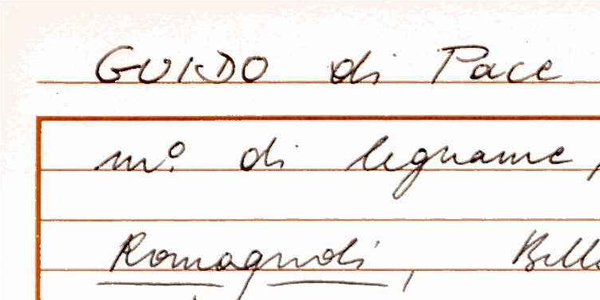 GUIDO di Pace
m.º di legname,
Romagnoli,